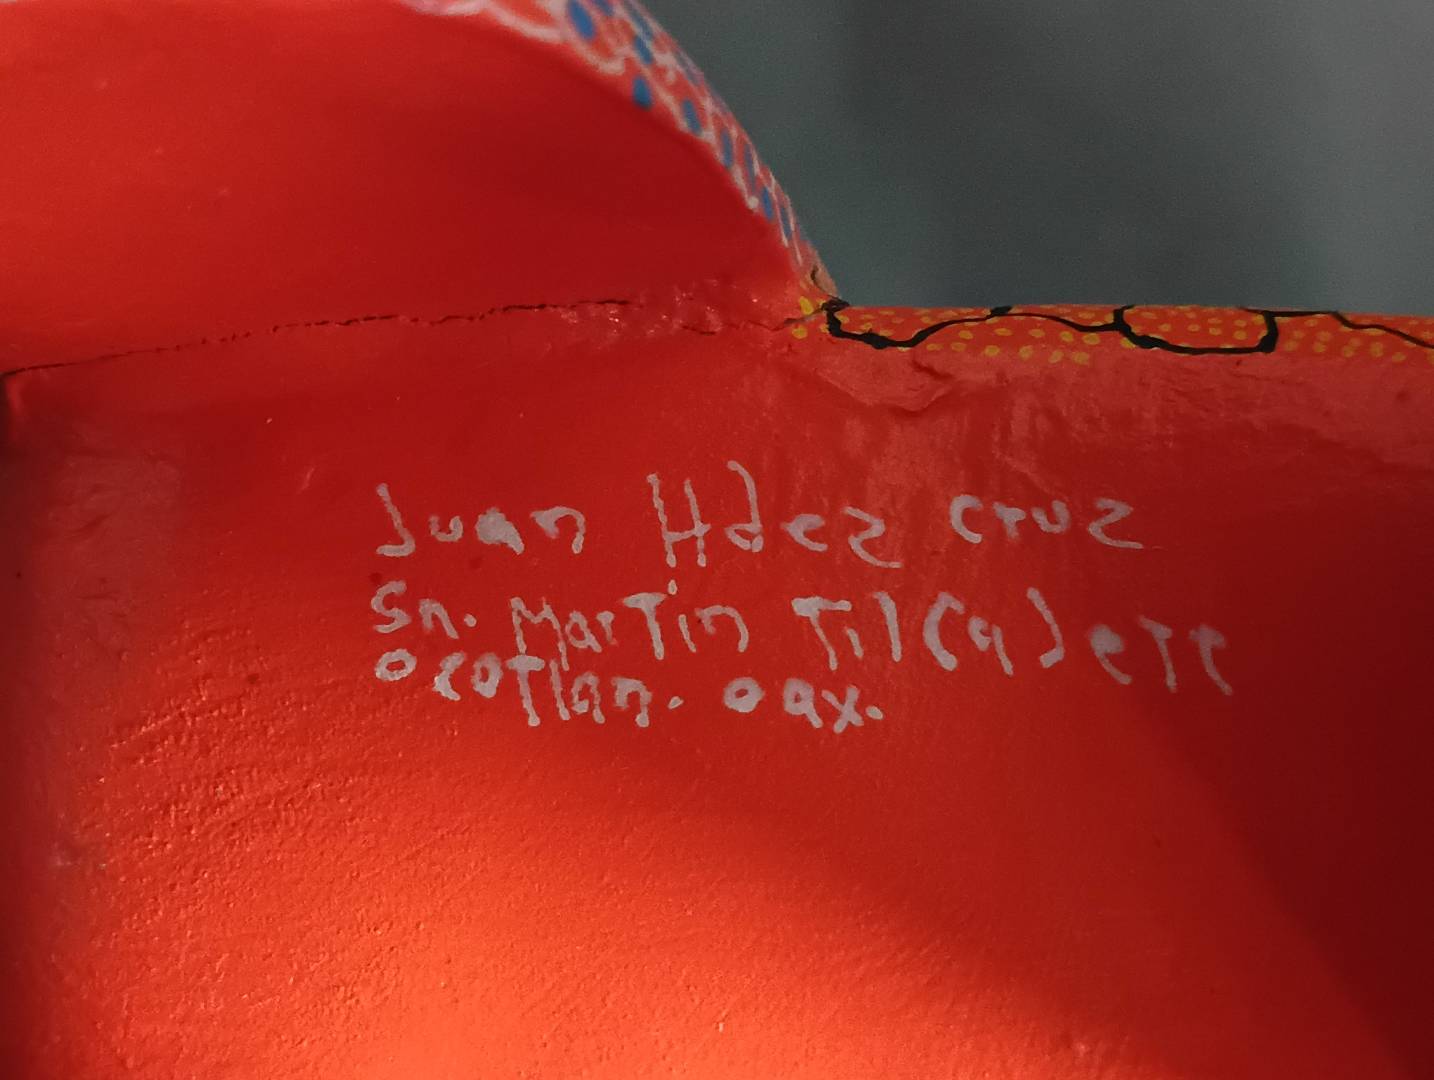 Juan Hdez cruz
Sn. Martin Tilcajete
ocotlan. oax.